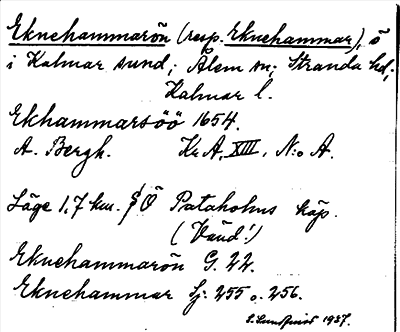 Eknehammarön (resp. Eknehammar), ö
i Kalmar sund; Ålem sn; Stranda hd;
Kalmar l.
Ekhammarsöö 1654.
A. Bergh. Kr A, XIII, N:o A.
Läge 1,7 km. Ö Pataholms köp.
(Vänd!)
Eknehammarön G. 22.
Eknehammar Sj. 255 o. 256.
S. Lundquist 1937.